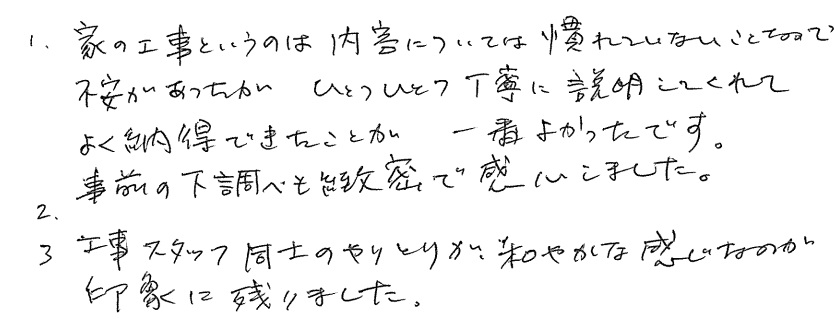 1. 家の工事というのは内容については慣れていないことなので
不安があったが ひとつひとつ丁寧に説明してくれて
よく納得できたことが 一番よかったです。
事前の下調べも緻密で感心しました。
2.
3 工事スタッフ同士のやりとりが、和やかな感じなのが
印象に残りました。